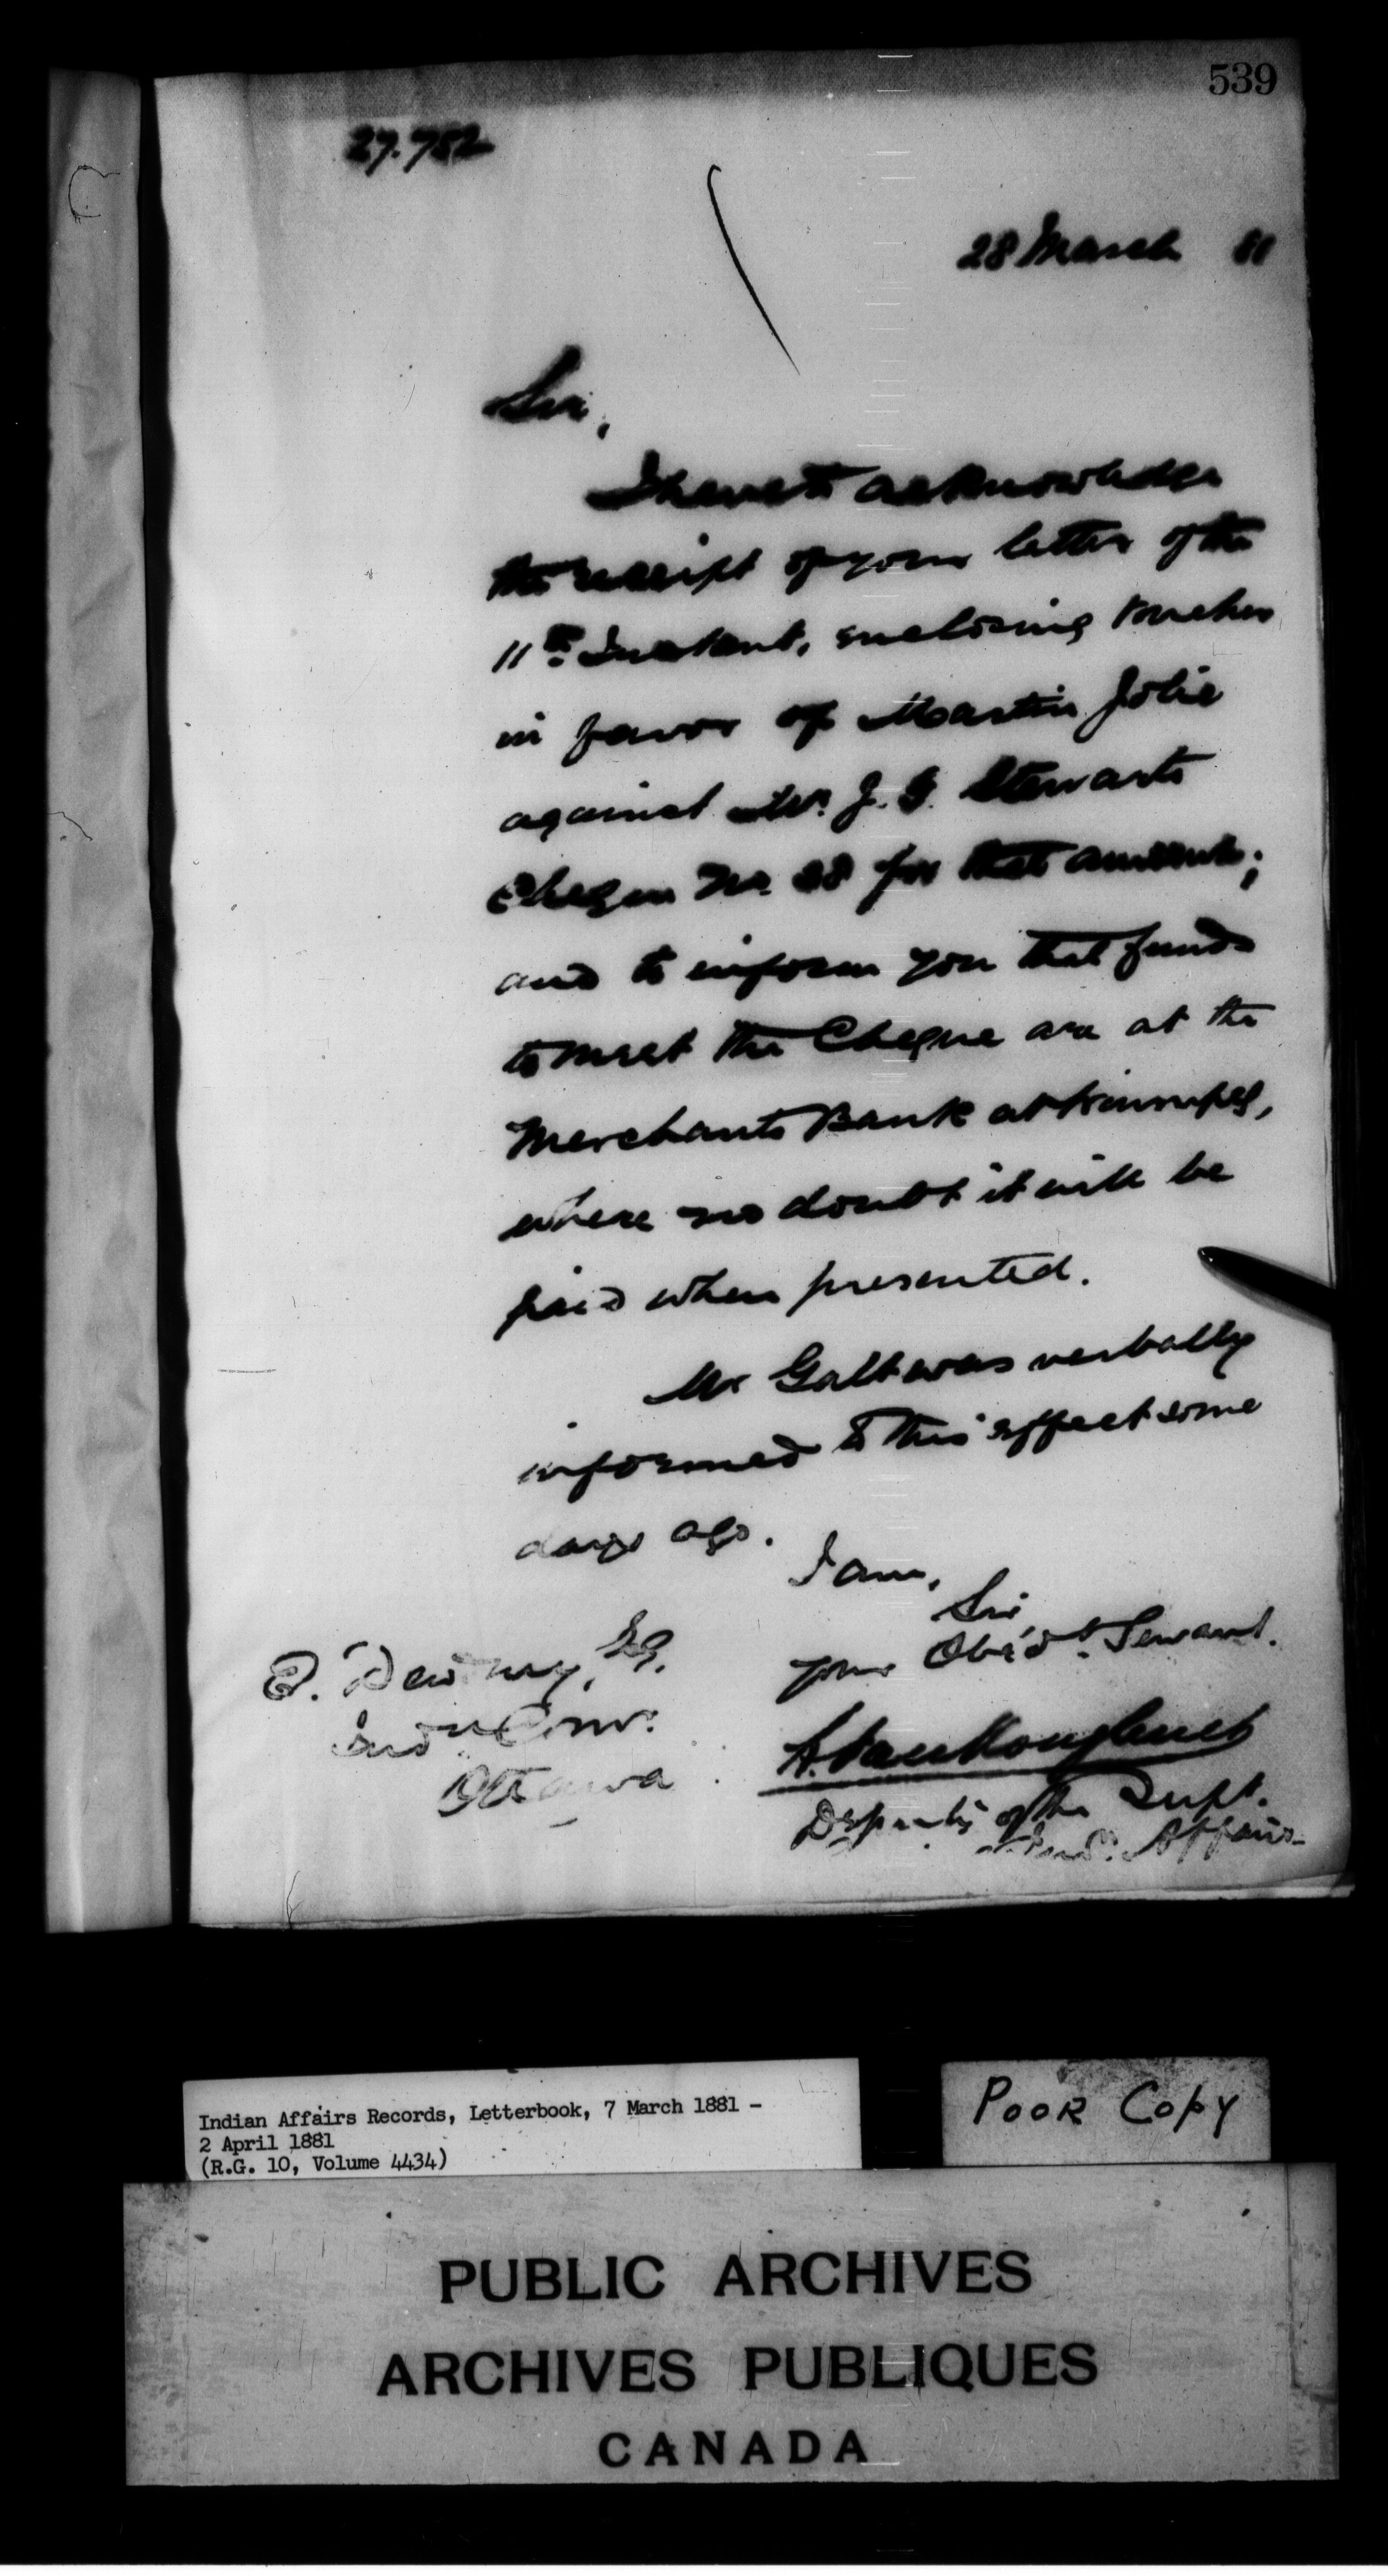 539
27.752
28 March 81
Sir,
I have to acknowledge
the receipt of your letter of the
11th Instant, enclosing voucher
in favor of Martin Jolie
against Mr. J. G. Stewarts
Cheque No. 28 for that amount;
and to inform you that funds
to meet the Cheque are at the
Merchants Bank at Winnipeg,
where no doubt it will be
paid when presented.
Mr Galt was verbally
informed to this effect some
days ago.
I am,
Sir
Your Obed't Servant.
E. Dewdney, Esq.
Indn Comr.
Ottawa
A. VanKoughnet
Deputy of the Supt.
Ind. Affairs
Indian Affairs Records, Letterbook, 7 March 1881 -
2 April 1881
(R.G. 10, Volume 4434)
POOR COPY
PUBLIC ARCHIVES
ARCHIVES PUBLIQUES
CANADA